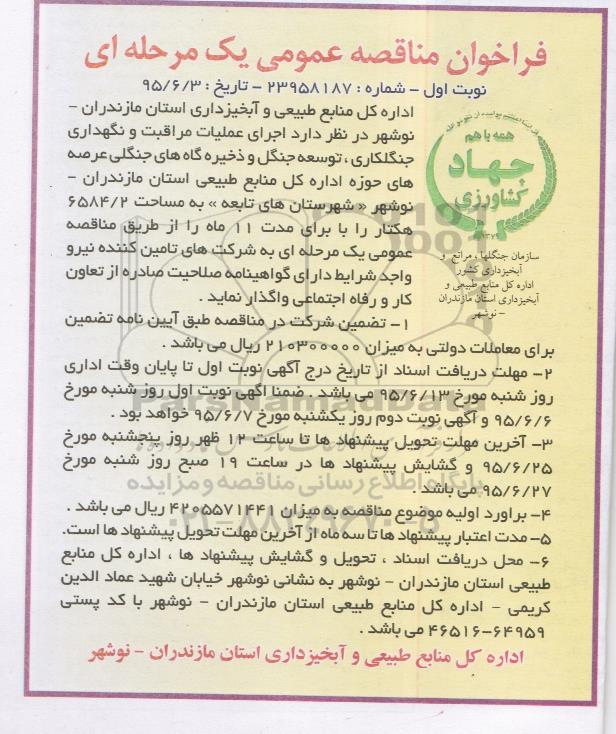 فراخوان مناقصه عمومی یک مرحله ای
نوبت اول - شماره : ۲۳۹۵۸۱۸۷ - تاریخ : ۹۵/۶/۳
اداره کل منابع طبیعی و آبخیزداری استان مازندران -
نوشهر در نظر دارد اجرای عملیات مراقبت و نگهداری
جنگلکاری ، توسعه جنگل و ذخیره گاه های جنگلی عرصه
های حوزه اداره کل منابع طبیعی استان مازندران -
نوشهر « شهرستان های تابعه » به مساحت ۶۵۸۴/۲
هکتار را با برای مدت ۱۱ ماه را از طریق مناقصه
عمومی یک مرحله ای به شرکت های تامین کننده نیرو
واجد شرایط دارای گواهینامه صلاحیت صادره از تعاون
کار و رفاه اجتماعی واگذار نماید .
همه با هم
جهاد
کشاورزی
سازمان جنگلها ، مراتع و
آبخیزداری کشور
اداره کل منابع طبیعی و
آبخیزداری استان مازندران
- نوشهر
۱- تضمین شرکت در مناقصه طبق آیین نامه تضمین
برای معاملات دولتی به میزان ۲۱۰۳۰۰۰۰۰ ریال می باشد .
۲- مهلت دریافت اسناد از تاریخ درج آگهی نوبت اول تا پایان وقت اداری
روز شنبه مورخ ۹۵/۶/۱۳ می باشد . ضمنا اگهی نوبت اول روز شنبه مورخ
۹۵/۶/۶ و آگهی نوبت دوم روز یکشنبه مورخ ۹۵/۶/۷ خواهد بود .
۳- آخرین مهلت تحویل پیشنهاد ها تا ساعت ۱۲ ظهر روز پنجشنبه مورخ
۹۵/۶/۲۵ و گشایش پیشنهاد ها در ساعت ۱۹ صبح روز شنبه مورخ
۹۵/۶/۲۷ می باشد .
۴- براورد اولیه موضوع مناقصه به میزان ۴۲۰۵۵۷۱۴۴۱ ریال می باشد .
۵- مدت اعتبار پیشنهاد ها تا سه ماه از آخرین مهلت تحویل پیشنهاد ها است.
۶- محل دریافت اسناد ، تحویل و گشایش پیشنهاد ها ، اداره کل منابع
طبیعی استان مازندران - نوشهر به نشانی نوشهر خیابان شهید عماد الدین
کریمی - اداره کل منابع طبیعی استان مازندران - نوشهر با کد پستی
۴۶۵۱۶-۶۴۹۵۹ می باشد .
اداره کل منابع طبیعی و آبخیزداری استان مازندران - نوشهر
ParsNamadData
پایگاه اطلاع رسانی مناقصه و مزایده
۰۲۱-۸۸۳۴۹۶۷۰-۵